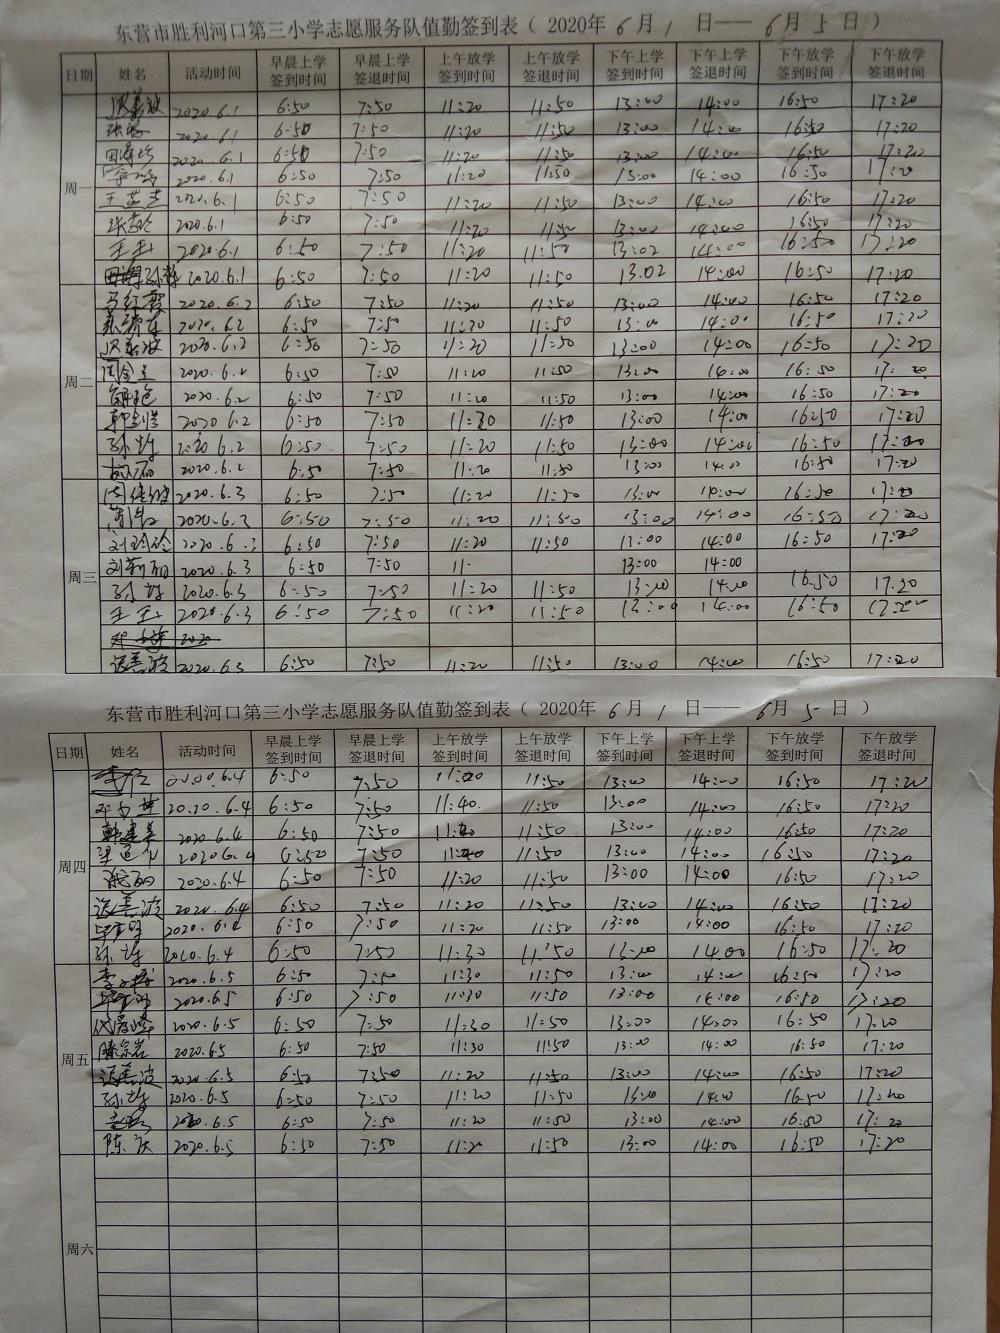 东营市胜利河口第三小学志愿服务队值勤签到表（2020年 6月 1 日—— 6月 5日）
日期 姓名 活动时间 早晨上学签到时间 早晨上学签退时间 上午放学签到时间 上午放学签退时间 下午上学签到时间 下午上学签退时间 下午放学签到时间 下午放学签退时间
周一
2020.6.1 6:50 7:50 11:20 11:50 13:00 14:00 16:50 17:20
2020.6.1 6:50 7:50 11:20 11:50 13:00 14:00 16:50 17:20
2020.6.1 6:50 7:50 11:20 11:50 13:00 14:00 16:50 17:20
2020.6.1 6:50 7:50 11:20 11:50 13:00 14:00 16:50 17:20
2020.6.1 6:50 7:50 11:20 11:50 13:00 14:00 16:50 17:20
2020.6.1 6:50 7:50 11:20 11:50 13:00 14:00 16:50 17:20
2020.6.1 6:50 7:50 11:20 11:50 13:02 14:00 16:50 17:20
2020.6.1 6:50 7:50 11:20 11:50 13.02 14:00 16:50 17:20
周二
2020.6.2 6:50 7:50 11:20 11:50 13:00 14:00 16:50 17:20
2020.6.2 6:50 7:50 11:20 11:50 13:00 14:00 16:50 17:20
2020.6.2 6:50 7:50 11:20 11:50 13:00 14:00 16:50 17:20
2020.6.2 6:50 7:50 11:20 11:50 13:00 14:00 16:50 17:20
2020.6.2 6:50 7:50 11:20 11:50 13:00 14:00 16:50 17:20
2020.6.2 6:50 7:50 11:30 11:50 13:00 14:00 16:50 17:20
2020 6.2 6:50 7:50 11:20 11:50 13:00 14:00 16:50 17:20
2020.6.2 6:50 7:50 11:20 11:50 13:00 14:00 16:50 17:20
周三
2020.6.3 6:50 7:50 11:20 11:50 13:00 14:00 16:50 17:20
2020.6.3 6:50 7:50 11:20 11:50 13:00 14:00 16:50 17:20
2020.6.3 6:50 7:50 11:20 11:50 13:00 14:00 16:50 17:20
2020.6.3 6:50 7:50 11. 13:00 14:00
2020.6.3 6:50 7:50 11:20 11:50 13:00 14:00 16:50 17.20
2020.6.3 6:50 7:50 11:20 11:50 13:00 14:00 16:50 17:20
2020
迟善波 2020.6.3 6:50 7:50 11:20 11:50 13:00 14:00 16:50 17:20
东营市胜利河口第三小学志愿服务队值勤签到表（2020年 6月 1 日—— 6月 5日）
日期 姓名 活动时间 早晨上学签到时间 早晨上学签退时间 上午放学签到时间 上午放学签退时间 下午上学签到时间 下午上学签退时间 下午放学签到时间 下午放学签退时间
周四
2020.6.4 6:50 7:50 11:20 11:50 13:00 14:00 16:50 17:20
2020.6.4 6:50 7:50 11:40 11:50 13:00 14:00 16:50 17:20
2020.6.4 6:50 7:50 11:20 11:50 13:00 14:00 16:50 17:20
2020 6.4 6:50 7:50 11:20 11:50 13:00 14:00 16:50 17:20
2020.6.4 6:50 7:50 11:20 11:50 13:00 14:00 16:50 17:20
迟善波 2020.6.4 6:50 7:50 11:20 11:50 13:00 14:00 16:50 17:20
2020.6.4 6:50 7:50 11:20 11:50 13:00 14:00 16:50 17:20
2020.6.4 6:50 7:50 11:30 11:50 13:00 14:00 16:50 17:20
周五
2020.6.5 6:50 7:50 11:30 11:50 13:00 14:00 16:50 17:20
2020.6.5 6:50 7:50 11:30 11:50 13:00 14:00 16:50 17:20
2020.6.5 6:50 7:50 11:30 11:50 13:00 14:00 16:50 17:20
2020.6.5 6:50 7:50 11:30 11:50 13:00 14:00 16:50 17:20
迟善波 2020.6.5 6:50 7:50 11:20 11:50 13:00 14:00 16:50 17:20
2020.6.5 6:50 7:50 11:20 11:50 14:00 16:50 17:20
2020.6.5 6:50 7:50 11:20 11:50 13:00 14:00 16:50 17:20
陈庆 2020.6.5 6:50 7:50 11:20 11:50 13:00 14:00 16:50 17:20
周六